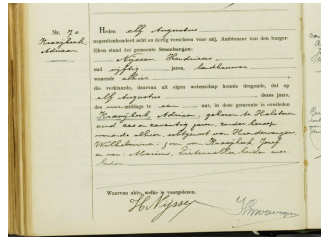 Nr. 70
Kraaijkerk,
Adriaan.
Heden elf Augustus
negentienhonderd acht en dertig verscheen voor mij, Ambtenaar van den burger-
lijken stand der gemeente Steenbergen:
Nijssen Hendricus
oud vijftig jaren, landbouwer
wonende alhier
die verklaarde, daarvan uit eigen wetenschap kennis dragende, dat op
elf Augustus dezes jaars,
des middags te een uur, in deze gemeente is overleden
Kraaijkerk Adriaan, geboren te Halsteren
oud zes en zeventig jaren, zonder beroep
wonende alhier, echtgenoot van
Wilhelmina; zoon van Kraaijkerk Josef
en van beiden over-
leden
Waarvan akte, welke is voorgelezen.
H. Nijssen